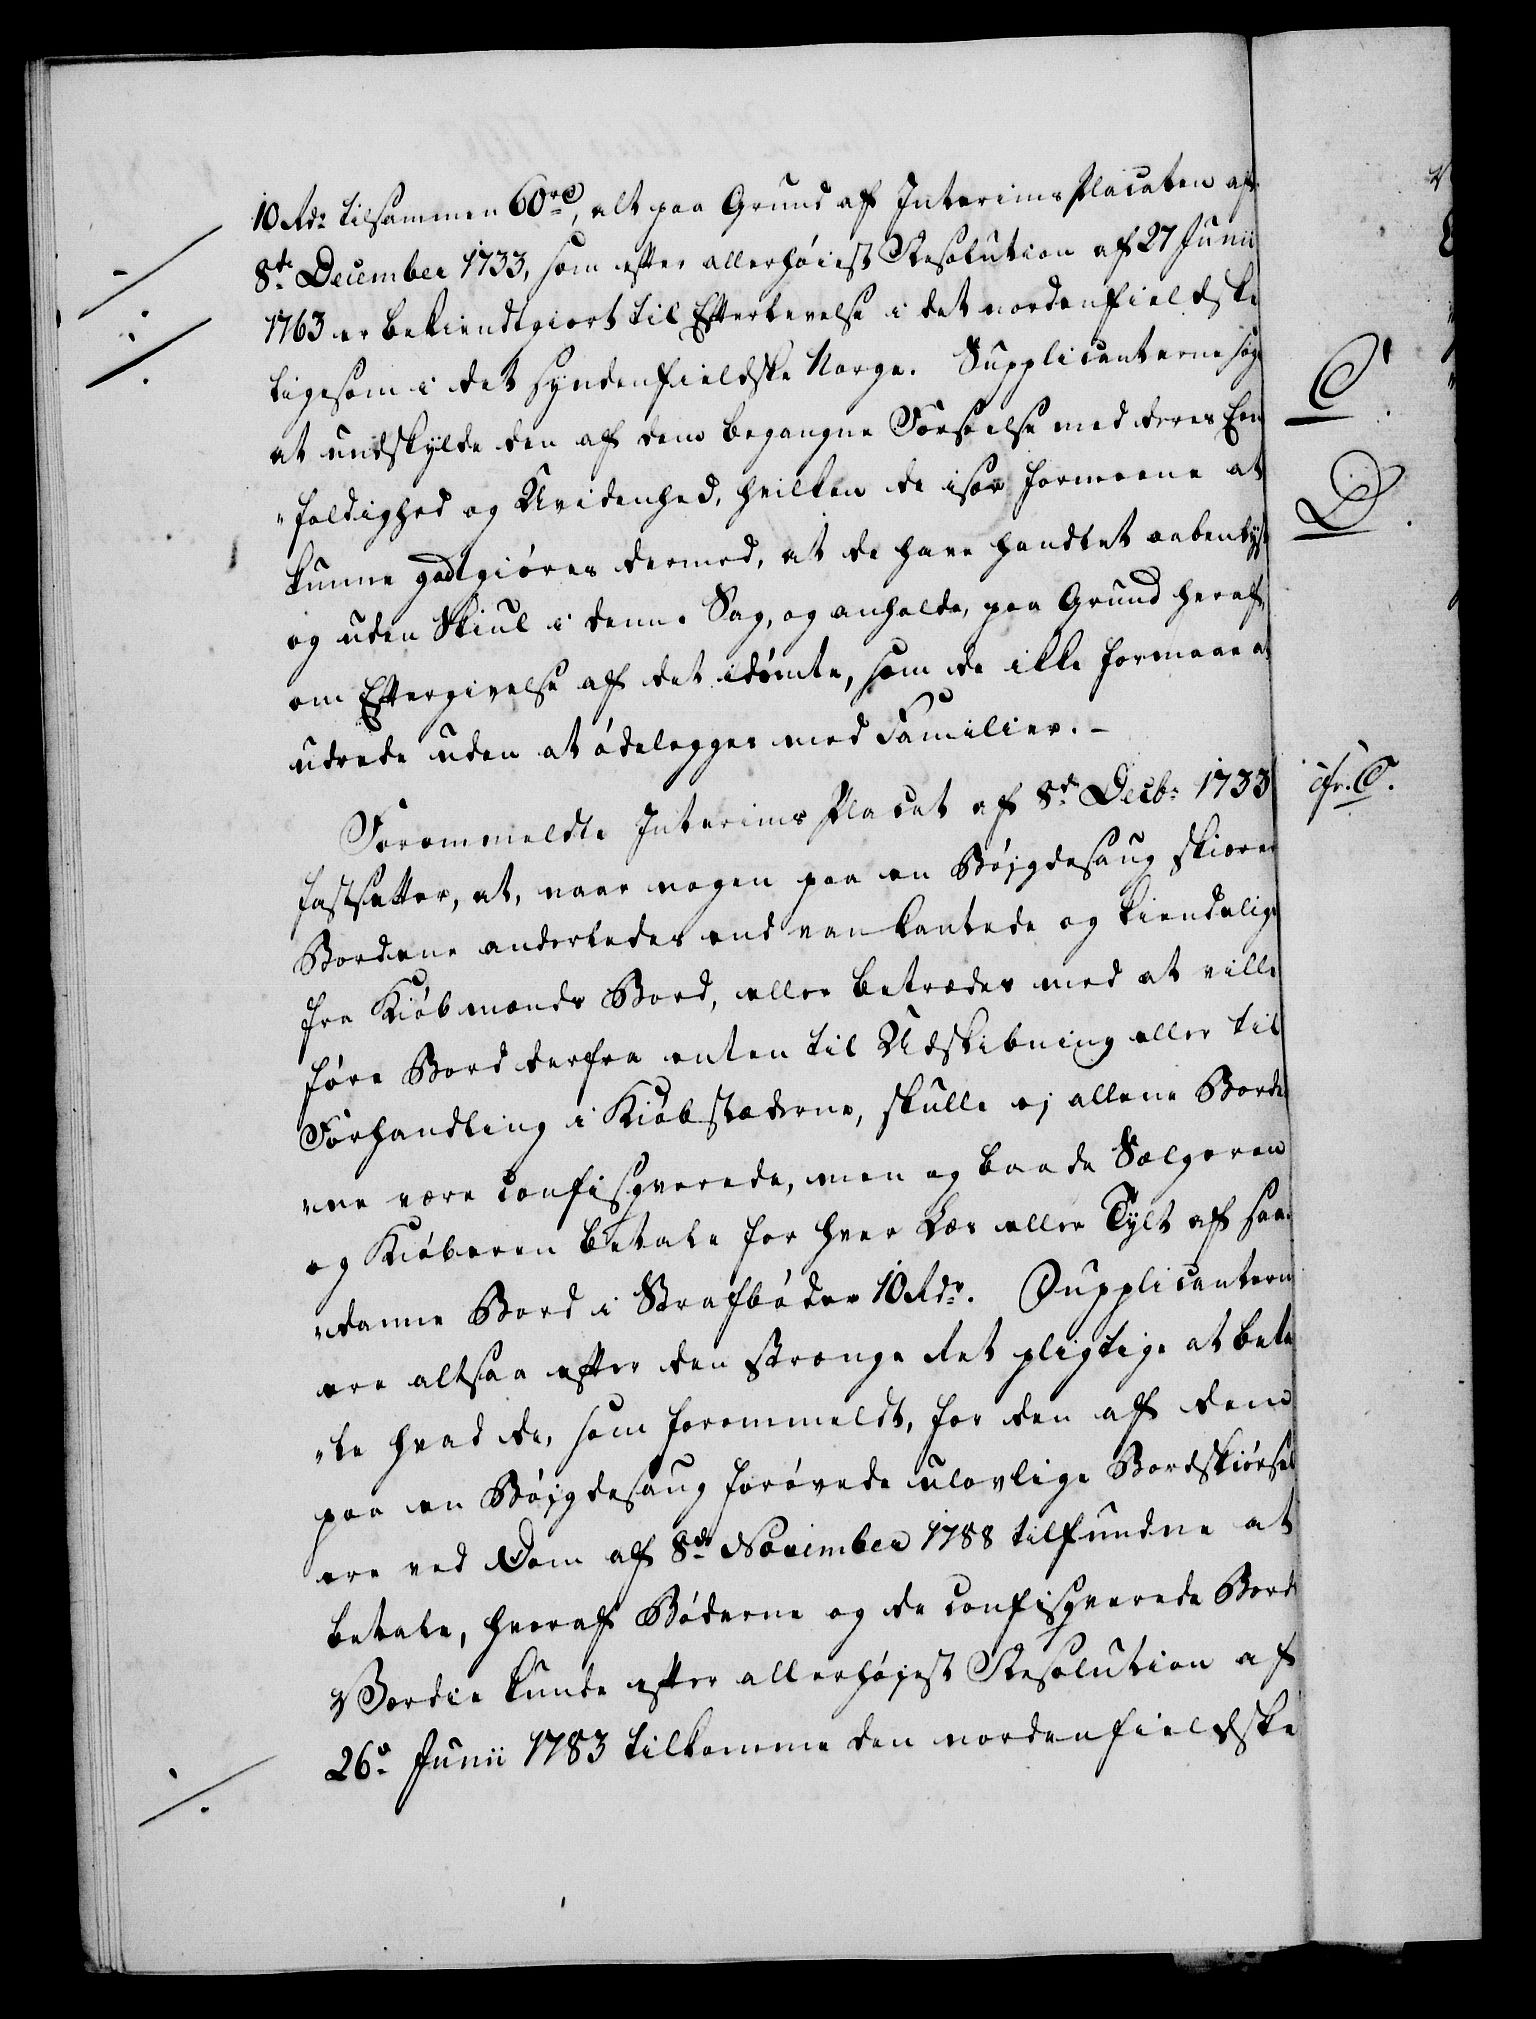 10 Rdr tilsammen 60 rd, alt paa Grund af Interims Placaten af
8de December 1733, som efter allerhöiest Resolution af 27 Junii
1763 er bekiendtgiort til Efterlevelse i det nordenfieldske
ligesom i det syndenfieldske Norge. Supplicanterne söge
C.
at undskylde den af dem begangne Forseelse med deres Een
„foldighed og Uvidenhed, hvilken de især formeene at
D.
kunne godtgiöres dermed, at de have handlet aabenlyst
og uden Skiul i denne Sag, og anholde, paa Grund heraf,
om Eftergivelse af det idömte, som de ikke formaae at
udrede uden at ödelegges med Familier. –
Forommeldte Interims Placat af 8de Decbr 1733
cfr. C.
fastsetter, at, naar nogen paa en Böjgdesaug skiærer
Bordene anderledes end vankantede og kiendelige
fra Kiöbmænds Bord, eller betrædes med at ville
före Bord derfra enten til Udskibning eller til
Forhandling i Kiöbstæderne, skulle ej allene Borde
„ne være confisqverede, men og baade Sælgeren
og Kiöberen betale for hver Læs eller Tylt af saa
„danne Bord i Strafböder 10 Rdr. Supplicanterne
ere altsaa efter den strænge Ret pligtige at beta
„le hvad de, som forommeldt, for den af dem
paa en Böjgdesaug forövede ulovlige Bordskiörsel
ere ved Dom af 8de November 1788 tilfundne at
betale, hvoraf Böderne og de confisqverede Bords
Værdie kunde efter allerhöjest Resolution af
26de Junii 1783 tilkomme den nordenfieldske